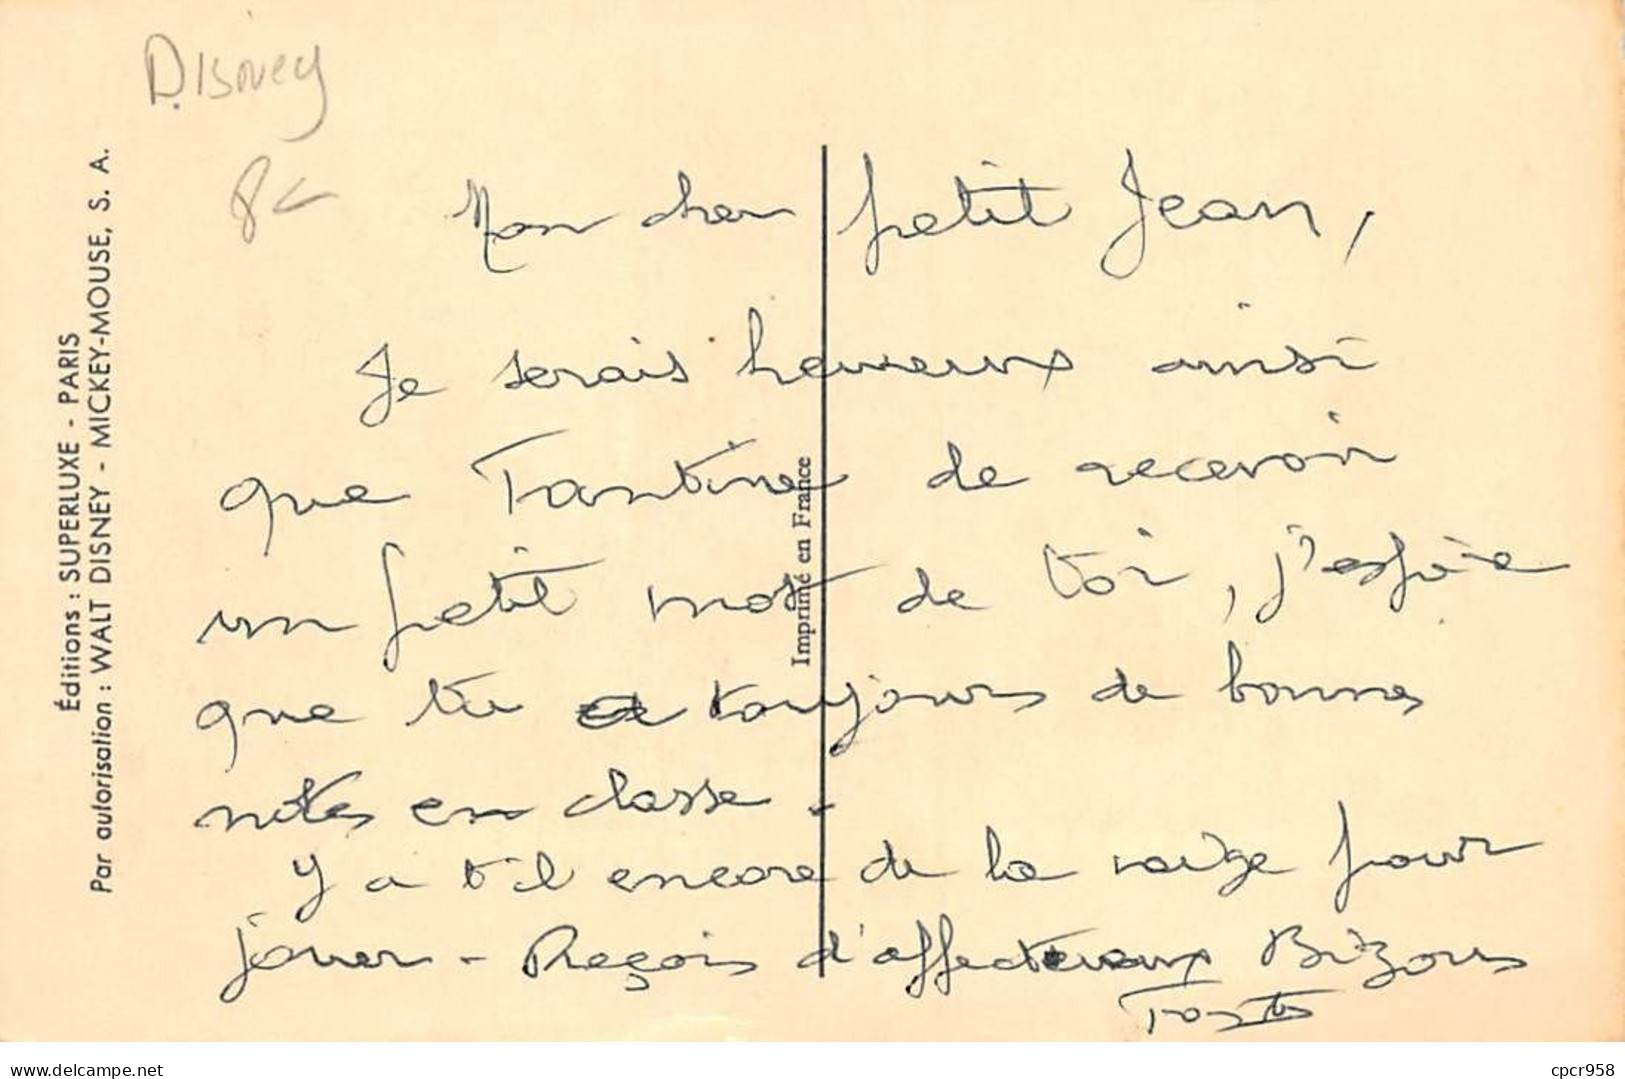 D.isney
8
Éditions : SUPERLUXE - PARIS
Par autorisation : WALT DISNEY - MICKEY-MOUSE, S. A.
Imprimé en France
Mon cher petit Jean,
Je serais heureux ainsi
que Tantine de recevoir
un petit mot de toi, j'espère
que tu a toujours de bonnes
notes en classe.
Y a t'il encore de la neige pour
jouer - Reçois d'affectueux Bizous
www.delcampe.net
cpcr958